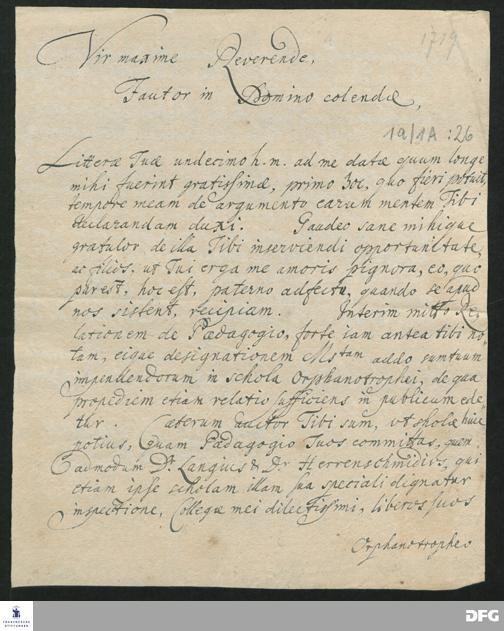 1719
Vir maxime Reverende,
Fautor in Domino colende,
1a/1A : 26
Litteræ Tuæ undecimo h. m. ad me datæ quum longe
mihi fuerint gratissimæ, primo hoc, quo fieri potuit,
tempore meam de argumento earum mentem Tibi
declarandam duxi. Gaudeo sane mihique
gratulor de illa Tibi inserviendi opportunitate,
ac filios, ut Tui erga me amoris pignora, eo, quo
par est, hoc est, paterno adfectu, quando se apud
nos sistent, recipiam. Interim mitto Re-
lationem de Pædagogio, forte iam antea tibi no-
tam, eique designationem Mstam addo sumtuum
impendendorum in schola Orphanotrophei, de qua
propediem etiam relatio sufficiens in publicum ede-
tur. Cæterum auctor Tibi sum, ut scholæ huic
potius, quam Pædagogio Tuos committas, quem-
admodum Dn. Langius & Dn. Herrenschmidius, qui
etiam ipse scholam illam sua speciali dignatur
inspectione, Collegæ mei dilectissimi, liberos suos
Orphanotropheo
FRANCKESCHE
STIFTUNGEN
DFG